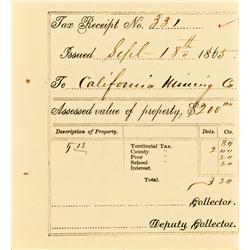 Tax Receipt No. 331
Issued Sept 18th 1865
To California Mining Co
Assessed value of property, $200 00
Description of Property. Dols. Cts.
Territorial Tax. 80
County " 2 00
Poor "
School " 20
Interest.
Total. 3
Collector.
Deputy Collector.